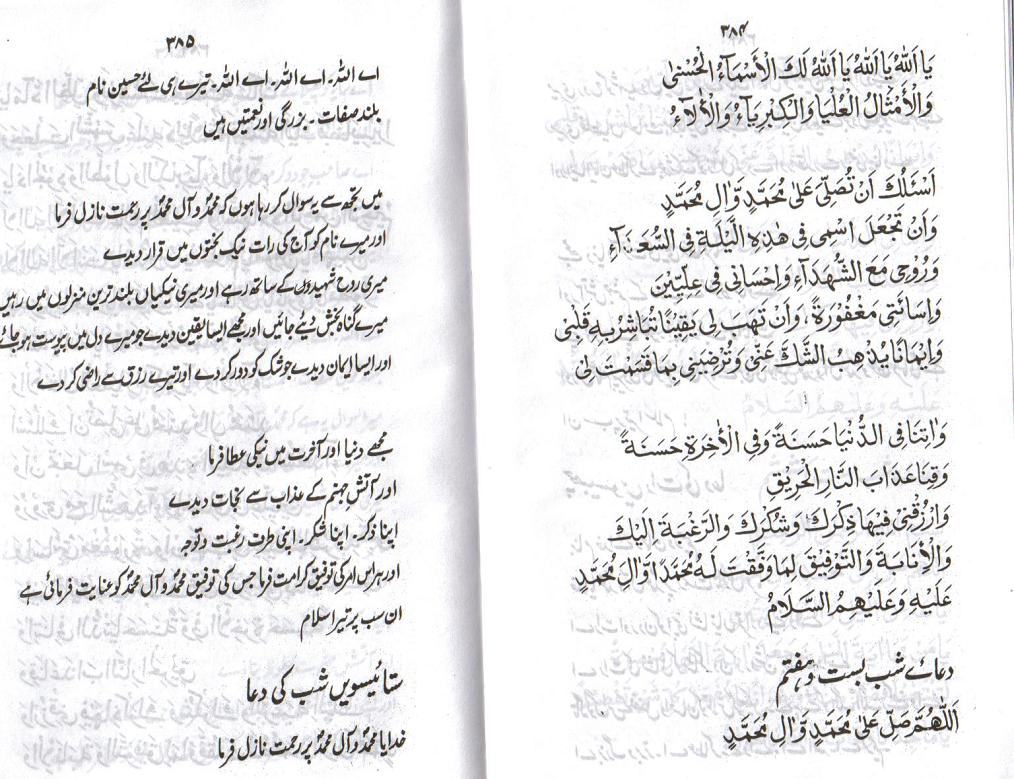 ۳۸۴
یَا اَللهُ یَا اَللهُ یَا اَللهُ لَكَ الْاَسْمَآءُ الْحُسْنٰی
وَالْاَمْثَالُ الْعُلْیَا وَالْكِبْرِیَآءُ وَالْاٰلَآءُ
اَسْئَلُكَ اَنْ تُصَلِّیَ عَلٰی مُحَمَّدٍ وَّاٰلِ مُحَمَّدٍ
وَاَنْ تَجْعَلَ اسْمِی فِی هٰذِهِ اللَّیْلَةِ فِی السُّعَدَآءِ
وَرُوْحِی مَعَ الشُّهَدَآءِ وَاِحْسَانِی فِی عِلِّیِّیْنَ
وَاِسَائَتِی مَغْفُوْرَةً، وَاَنْ تَهَبَ لِی یَقِیْنًا تُبَاشِرُ بِهِ قَلْبِی
وَاِیْمَانًا یُذْهِبُ الشَّكَّ عَنِّی وَتُرْضِیَنِی بِمَا قَسَمْتَ لِی
وَاٰتِنَا فِی الدُّنْیَا حَسَنَةً وَّفِی الْاٰخِرَةِ حَسَنَةً
وَقِنَا عَذَابَ النَّارِ الْحَرِیْقِ
وَارْزُقْنِی فِیْهَا ذِكْرَكَ وَشُكْرَكَ وَالرَّغْبَةَ اِلَیْكَ
وَالْاِنَابَةَ وَالتَّوْفِیْقَ لِمَا وَفَّقْتَ لَهُ مُحَمَّدًا وَّاٰلَ مُحَمَّدٍ
عَلَیْهِ وَعَلَیْهِمُ السَّلَامُ
دعائے شب بست و ہفتم
اَللّٰهُمَّ صَلِّ عَلٰی مُحَمَّدٍ وَّاٰلِ مُحَمَّدٍ
۳۸۵
اے اللہ۔ اے اللہ۔ اے اللہ۔ تیرے ہی لئے حسین نام
بلند صفات۔ بزرگی اور نعمتیں ہیں
میں تجھ سے یہ سوال کر رہا ہوں کہ محمدؐ و آل محمدؐ پر رحمت نازل فرما
اور میرے نام کو آج کی رات نیک بختوں میں قرار دیدے
میری روح شہیدوں کے ساتھ رہے اور میری نیکیاں بلند ترین منزلوں میں رہیں
میرے گناہ بخش دیئے جائیں اور مجھے ایسا یقین دیدے جو میرے دل میں پیوست ہو جائے
اور ایسا ایمان دیدے جو شک کو دور کر دے اور تیرے رزق سے راضی کر دے
مجھے دنیا اور آخرت میں نیکی عطا فرما
اور آتش جہنم کے عذاب سے نجات دیدے
اپنا ذکر۔ اپنا شکر۔ اپنی طرف رغبت و توجہ
اور ہر اس امر کی توفیق کرامت فرما جس کی توفیق محمدؐ و آل محمدؐ کو عنایت فرمائی ہے
ان سب پر تیرا سلام
ستائیسویں شب کی دعا
خدایا محمدؐ و آل محمدؐ پر رحمت نازل فرما